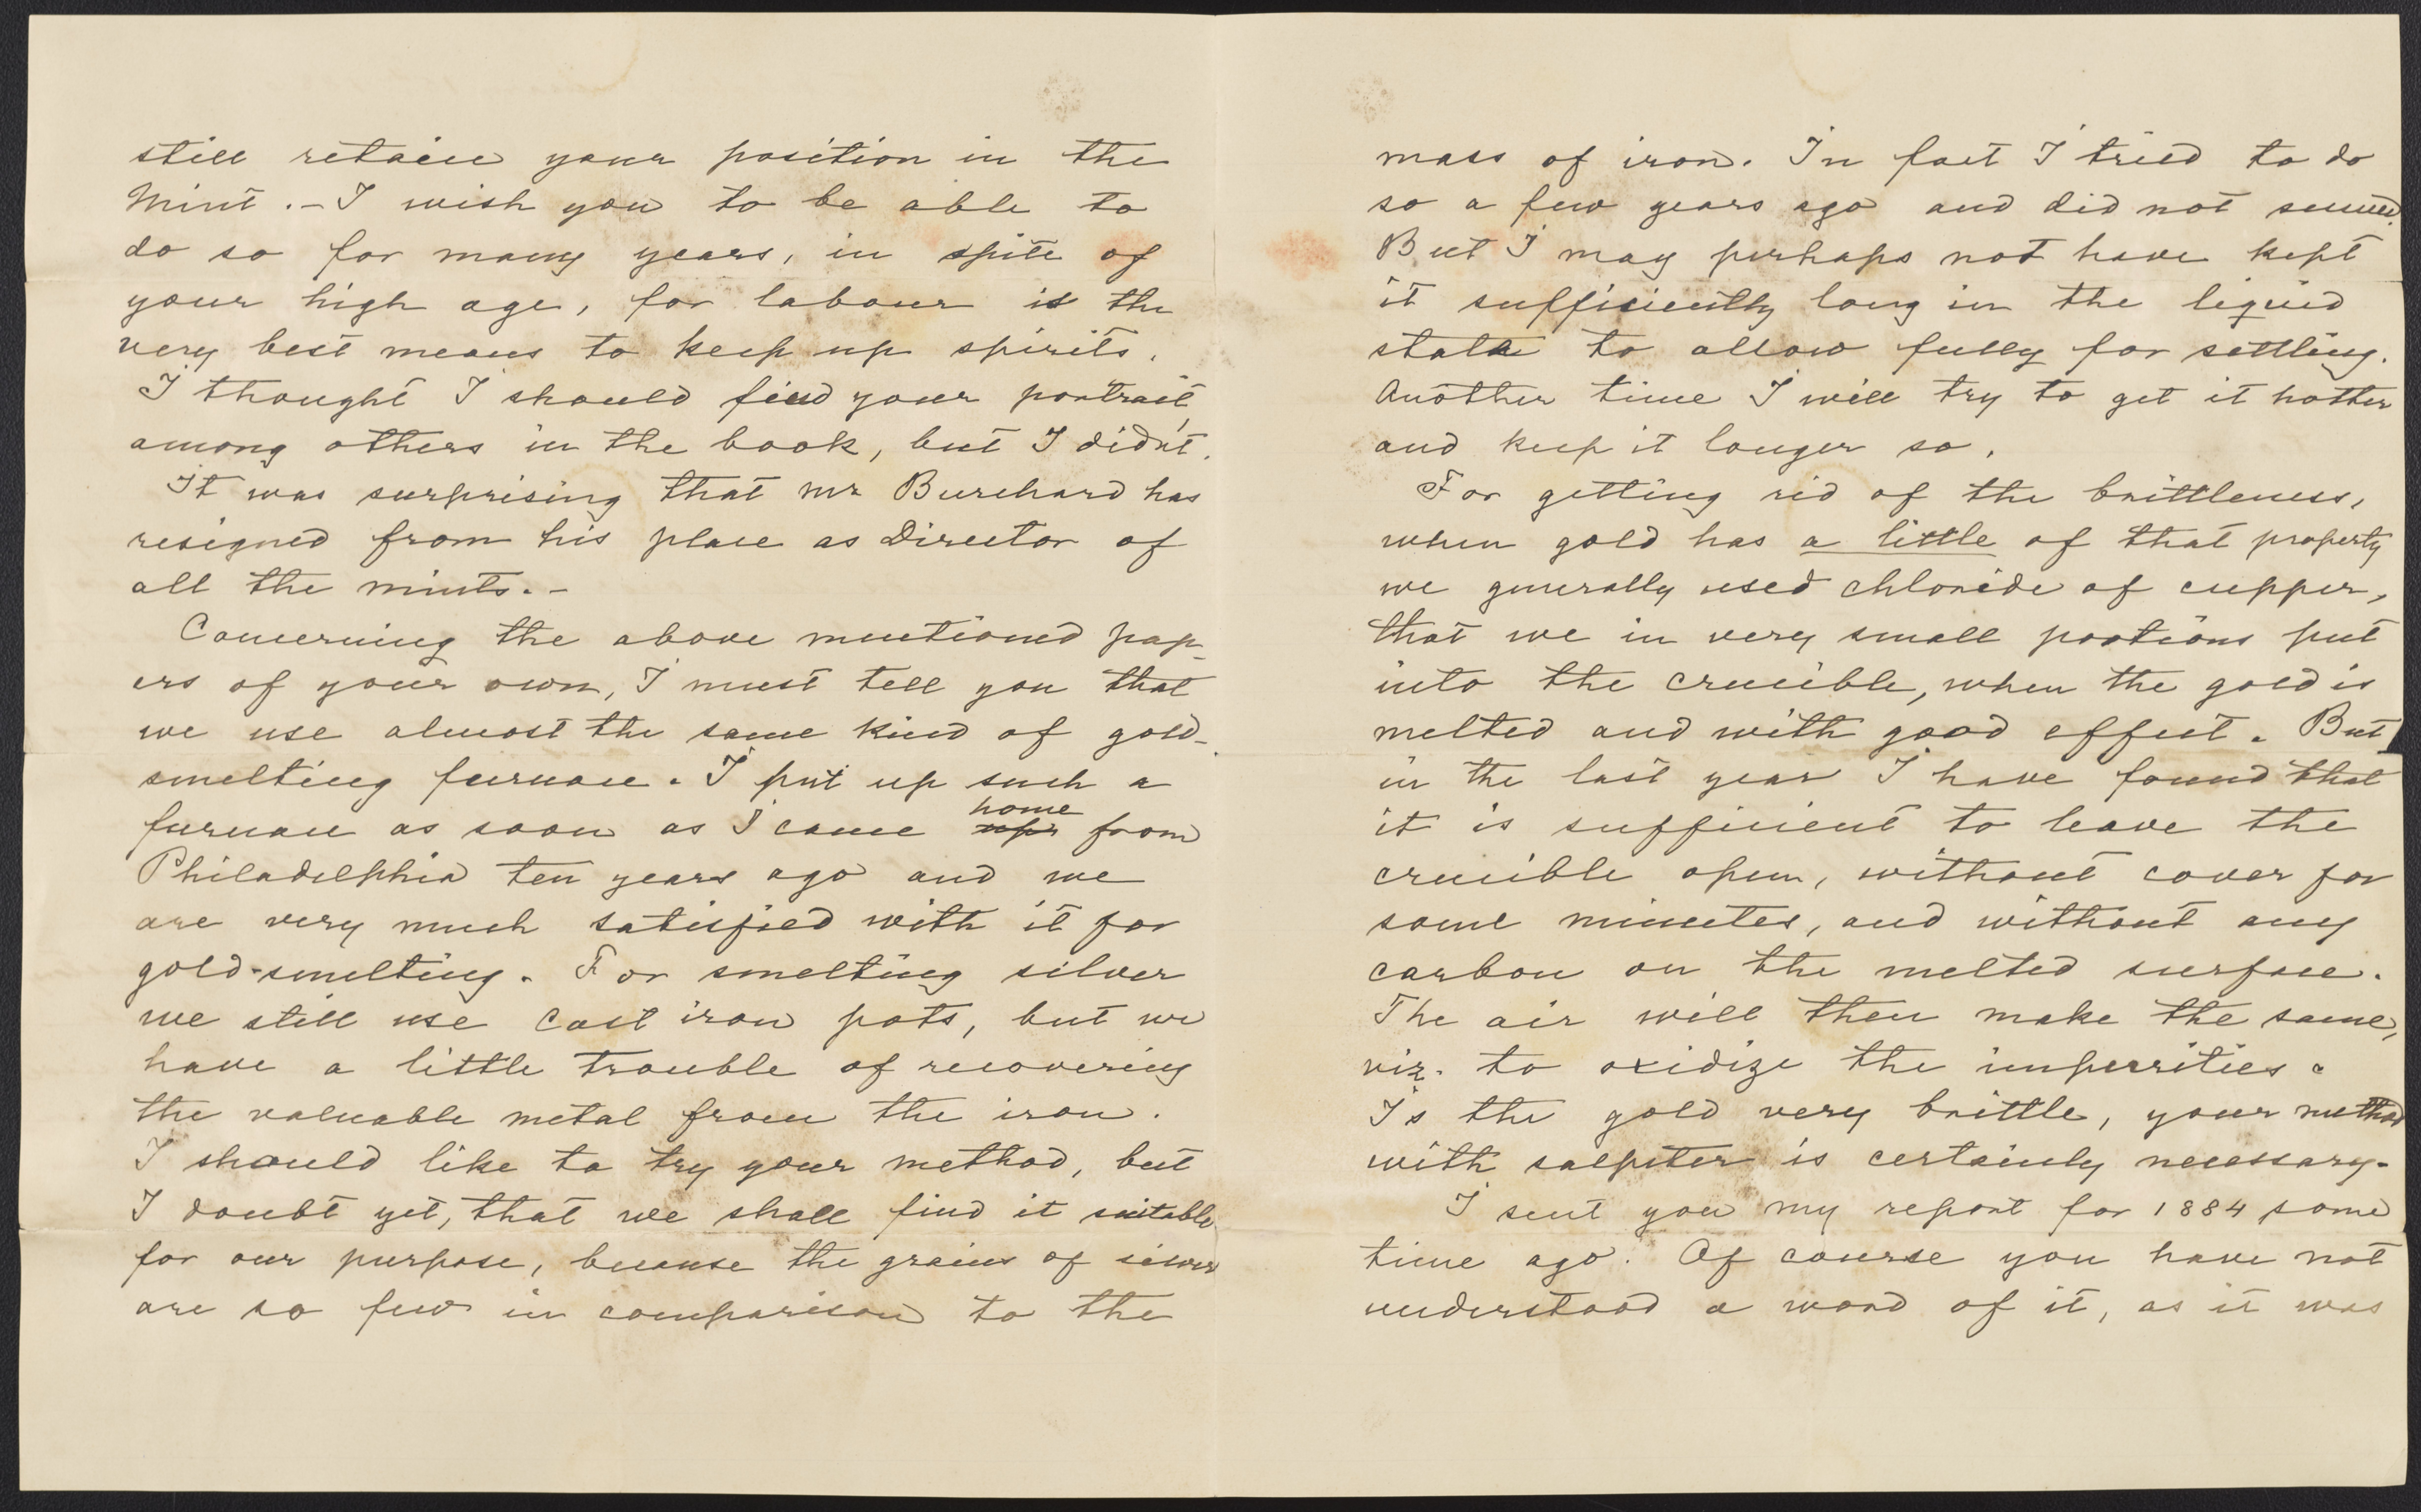 still retain your position in the
Mint. – I wish you to be able to
do so for many years, in spite of
your high age, for labour is the
very best means to keep up spirits.
I thought I should find your portrait
among others in the book, but I didn't.
It was surprising that mr Burchard has
resigned from his place as Director of
all the mints. –
Concerning the above mentioned pap-
ers of your own, I must tell you that
we use almost the same kind of gold-
smelting furnace. I put up such a
home
furnace as soon as I came from
Philadelphia ten years ago and we
are very much satisfied with it for
gold-smelting. For smelting silver
we still use cast iron pots, but we
have a little trouble of recovering
the valuable metal from the iron.
I should like to try your method, but
I doubt yet, that we shall find it suitable
for our purpose, because the grains of silver
are so few in comparison to the
mass of iron. In fact I tried to do
so a few years ago and did not succeed.
But I may perhaps not have kept
it sufficiently long in the liquid
state to allow fully for settling.
Another time I will try to get it hotter
and keep it longer so.
For getting rid of the brittleness,
when gold has a little of that property
we generally used chloride of cupper,
that we in very small portions put
into the crucible, when the gold is
melted and with good effect. But
in the last year I have found that
it is sufficient to leave the
crucible open, without cover for
some minutes, and without any
carbon on the melted surface.
The air will then make the same,
viz. to oxidize the impurities.
Is the gold very brittle, your method
with salpeter is certainly necessary.
I sent you my report for 1884 some
time ago. Of course you have not
understood a word of it, as it was